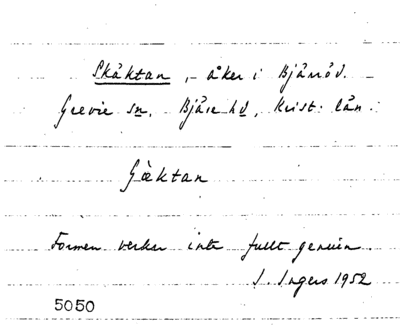 Skäktan, - åker i Bjäröd.
Grevie sn. Bjäre hd, Krist: län.
Gäktan
Formen verkar inte fullt genuin.
I. Ingers 1952
5050